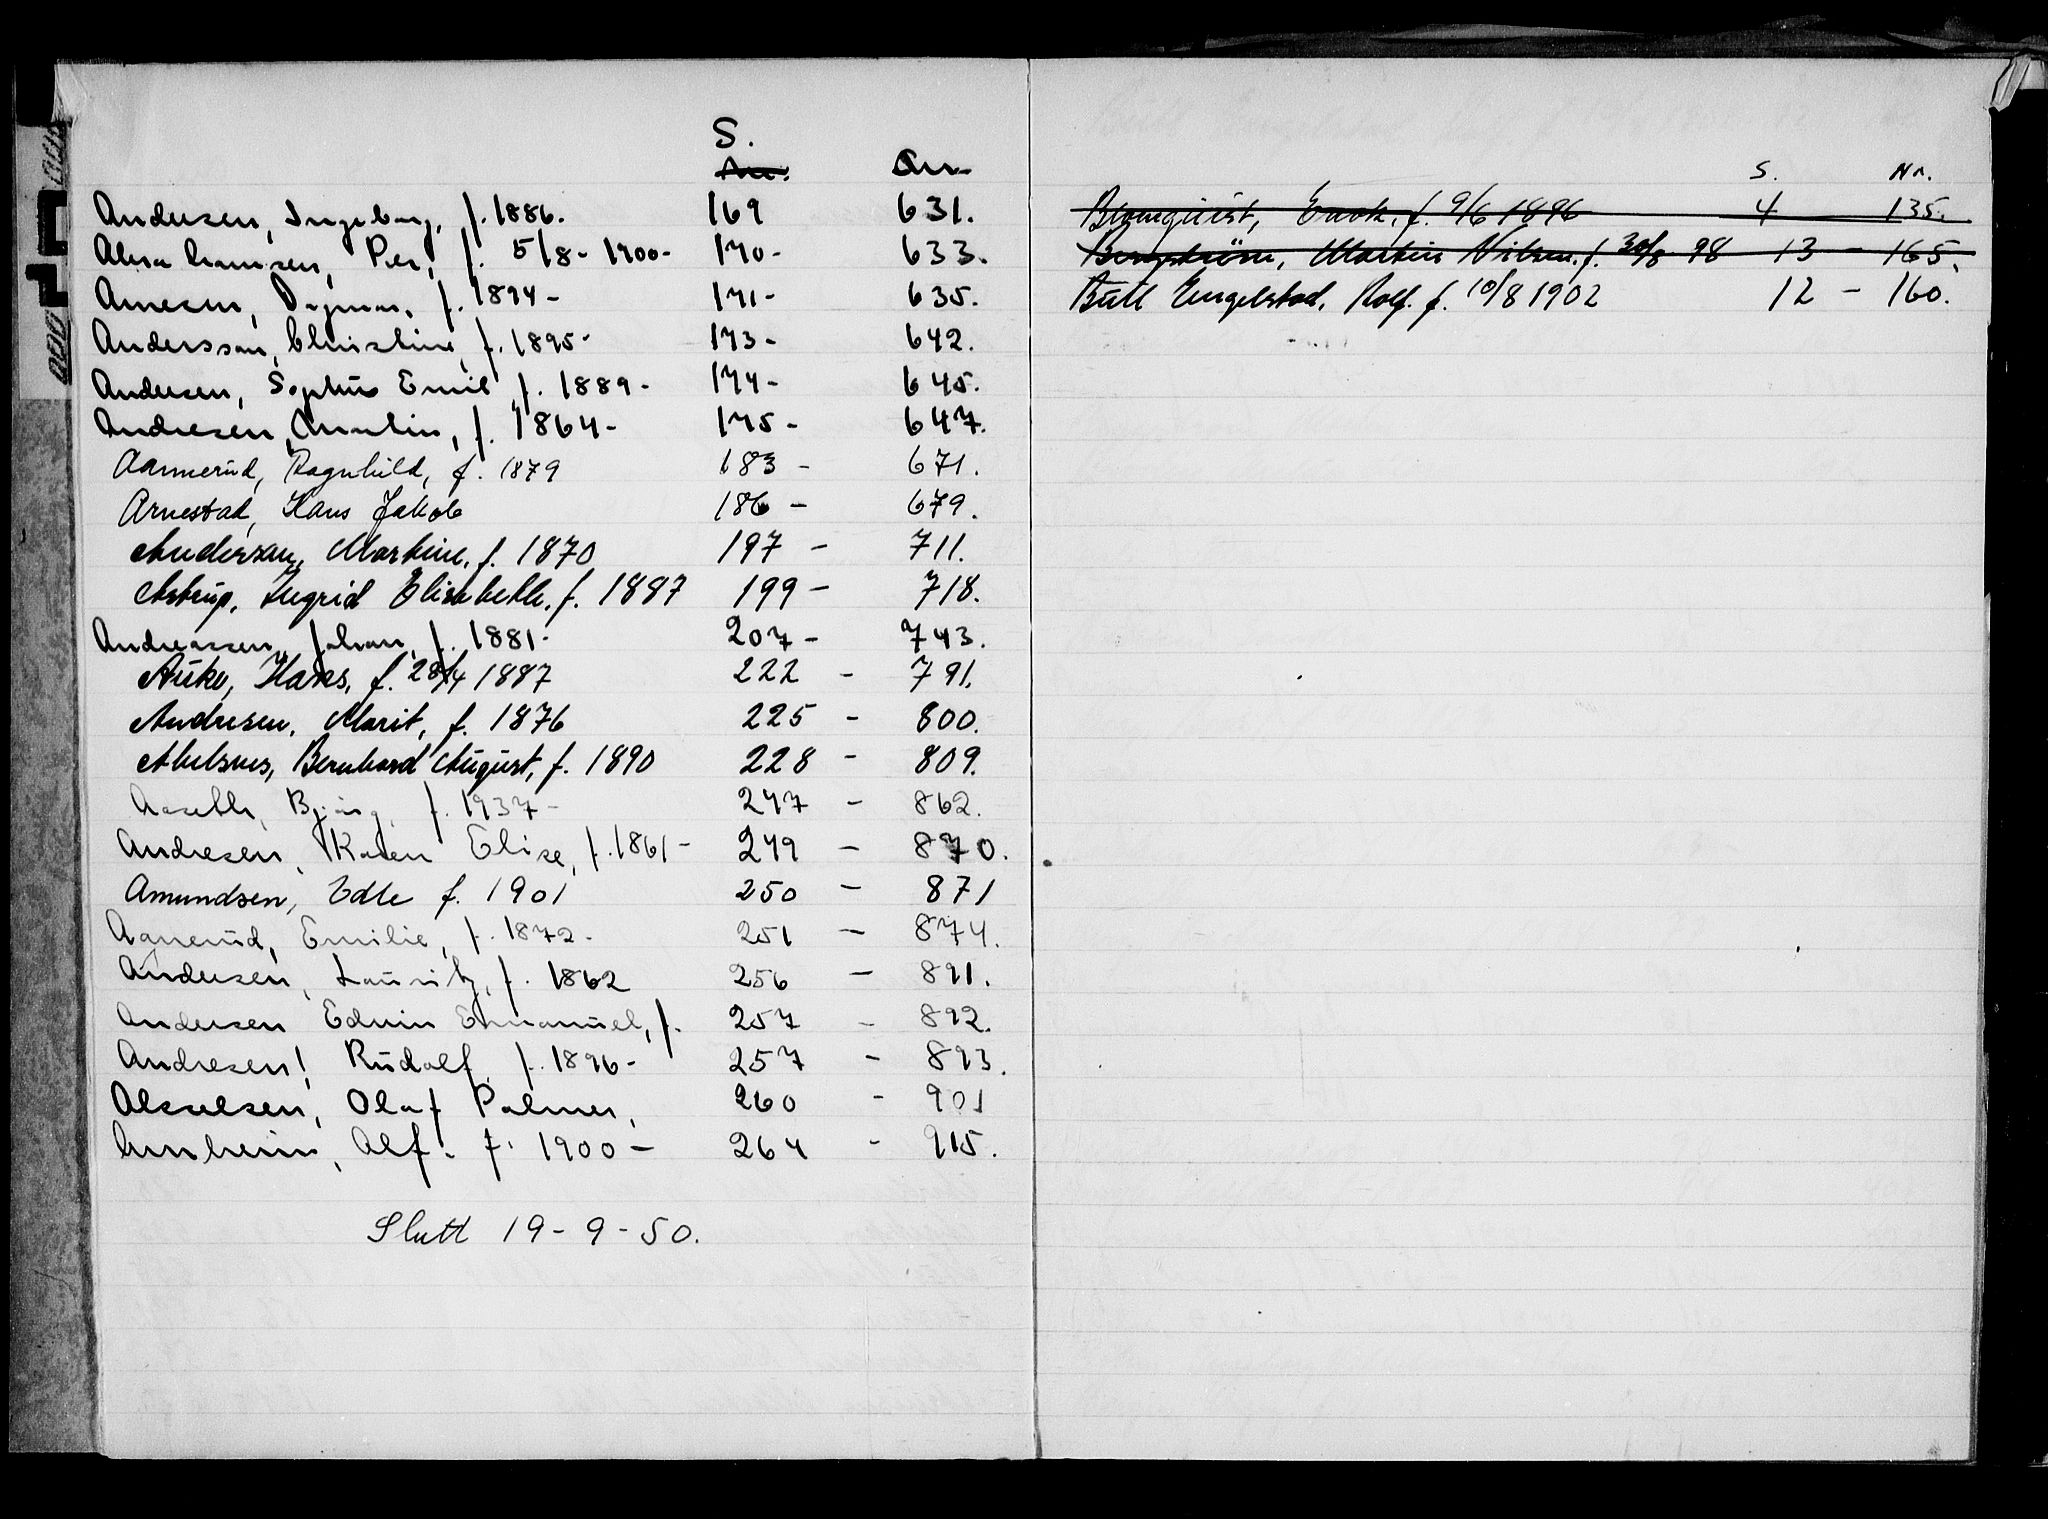 S.
Nr.
Andersen, Ingeborg, f. 1886. 169 631.
Abrahamsen, Per, f. 5/8- 1900- 170- 633.
Arnesen, Dagmar, f. 1894- 171- 635.
Andersson, Christine, f. 1895- 173- 642.
Andersen, Sophus Emil f. 1889- 174- 645.
Andresen, f. 1864- 175- 647.
Aamerud, Ragnhild, f. 1879 183 - 671.
Arnestad, Hans Jakob 186 - 679.
Anderson, Martine, f. 1870 197 - 711.
Astrup, Ingrid Elisabeth. f. 1887 199 - 718.
Andreassen, Johan, f. 1881- 207 - 743.
Auke, Hans, f. 28/4 1887 222 - 791.
Andresen, Marit, f. 1876 225 - 800.
Abelsnes, Bernhard August, f. 1890 228 - 809.
Aaseth, Bjørg, f. 1937- 247 - 862.
Andresen, Karen Elise, f. 1861- 249 - 870.
Amundsen, Edle f. 1901 250 - 871
Agnerud, Emilie, f. 1872- 251 - 874.
Andersen, Lauritz, f. 1862 256 - 891.
Andersen Edwin Emanuel, f. 257 - 892.
Andresen, Rudolf, f. 1896- 257 - 893.
Olaf Palmer, 260 - 901
Arnheim, Alf. f. 1900- 264 - 915.
Slutt 19-9-50.
S. Nr.
Blomquist, Enok, f. 9/6 1896 4 135.
Bergstrøm, Martin Nilsen. f. 30/8 98 13 - 165.
Bull Engelstad, Rolf. f. 10/8 1902 12 - 160.